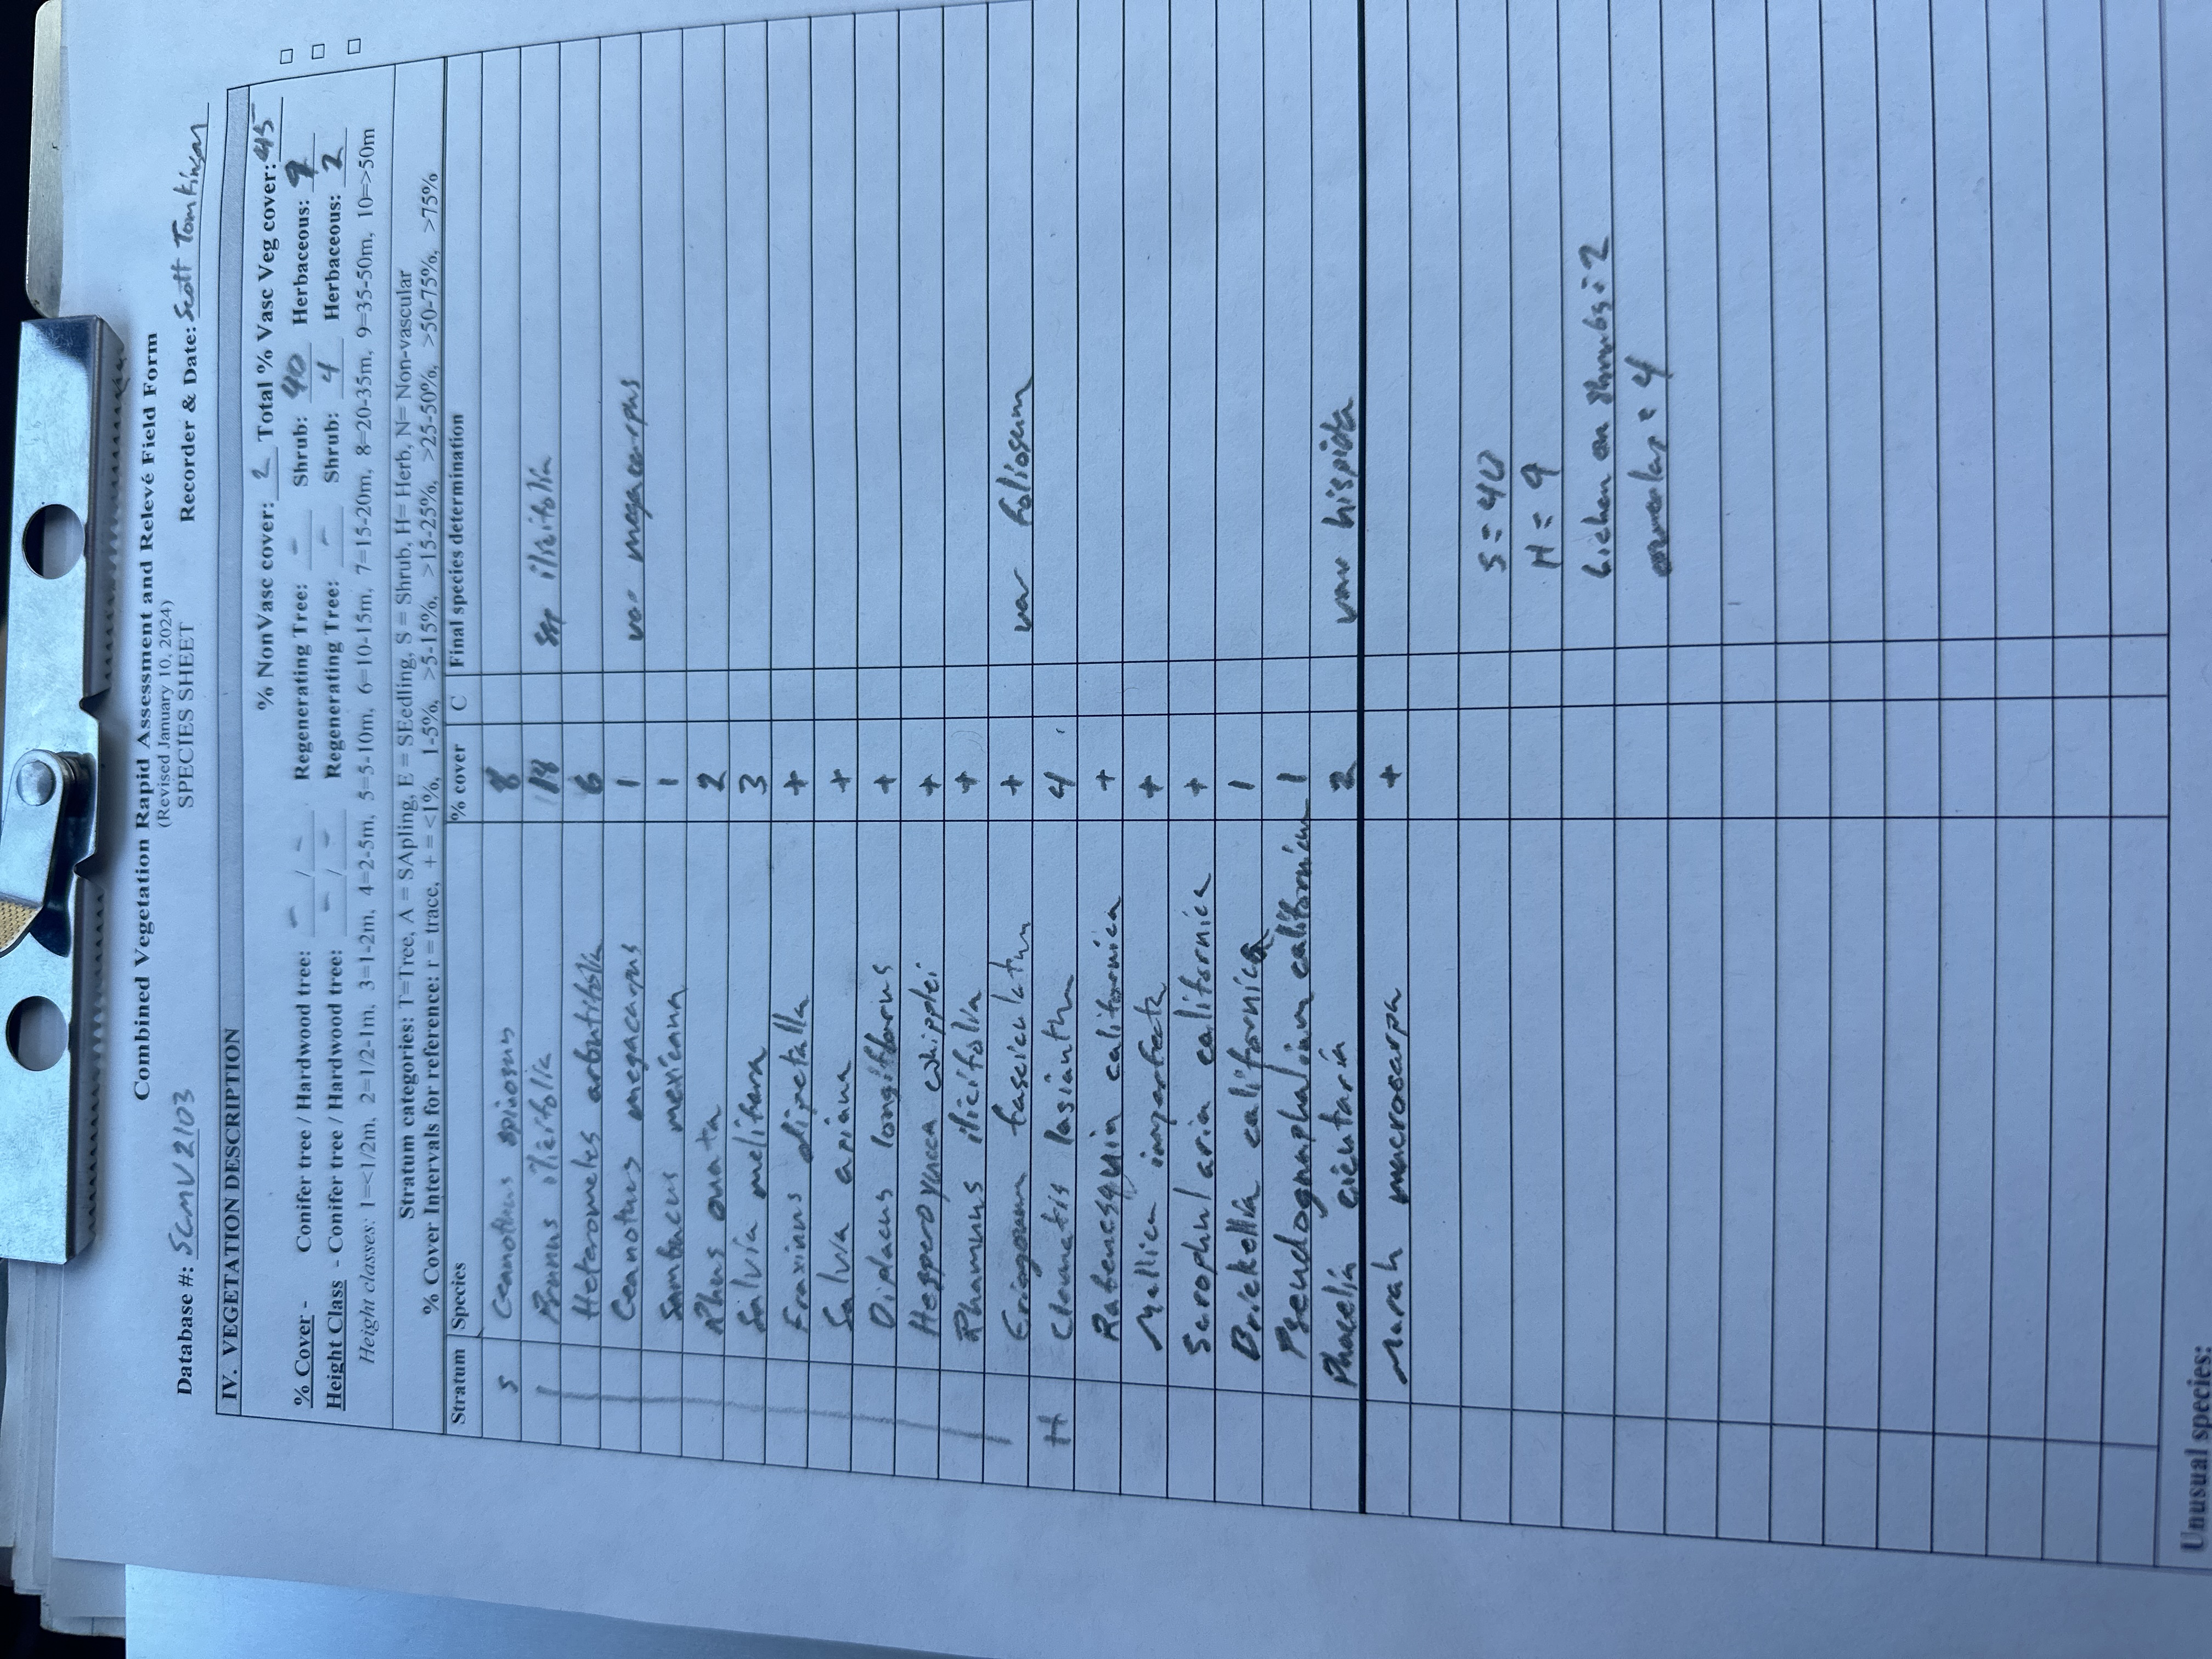 Combined Vegetation Rapid Assessment and Relevé Field Form
(Revised January 10, 2024)
Database #: SCMV2103 SPECIES SHEET Recorder & Date: Scott Tomkinson
IV. VEGETATION DESCRIPTION
% NonVasc cover: 2 Total % Vasc Veg cover: 45
% Cover - Conifer tree / Hardwood tree: - / - Regenerating Tree: - Shrub: 40 Herbaceous: 9
Height Class - Conifer tree / Hardwood tree: - / - Regenerating Tree: - Shrub: 4 Herbaceous: 2
Height classes: 1=<1/2m, 2=1/2-1m, 3=1-2m, 4=2-5m, 5=5-10m, 6=10-15m, 7=15-20m, 8=20-35m, 9=35-50m, 10=>50m
Stratum categories: T=Tree, A = SApling, E = SEedling, S = Shrub, H= Herb, N= Non-vascular
% Cover Intervals for reference: r = trace, + = <1%, 1-5%, >5-15%, >15-25%, >25-50%, >50-75%, >75%
Stratum Species % cover C Final species determination
S Ceanothus spinosus 8
Prunus ilicifolia 18 ssp ilicifolia
Heteromeles arbutifolia 6
Ceanotus megacarpus 1 var megacarpus
Sambucus mexicana 1
Rhus ovata 2
Salvia melifera 3
Fraxinus dipetalla +
Salvia apiana +
Diplacus longiflorus +
Hesperoyucca whipplei +
Rhamnus ilicifolia +
Eriogonum fasciculatum + var foliosum
H Clematis lasiantha 4
Rafenesquia californica +
Mellica imperfecta +
Scrophularia californica +
Brickellia californica 1
Pseudognaphalium californicum 1
Phacelia cicutaria 2 var hispida
Marah macrocarpa +
S = 40
H = 9
Lichen on shrubs: 2
overlap = 4
Unusual species: